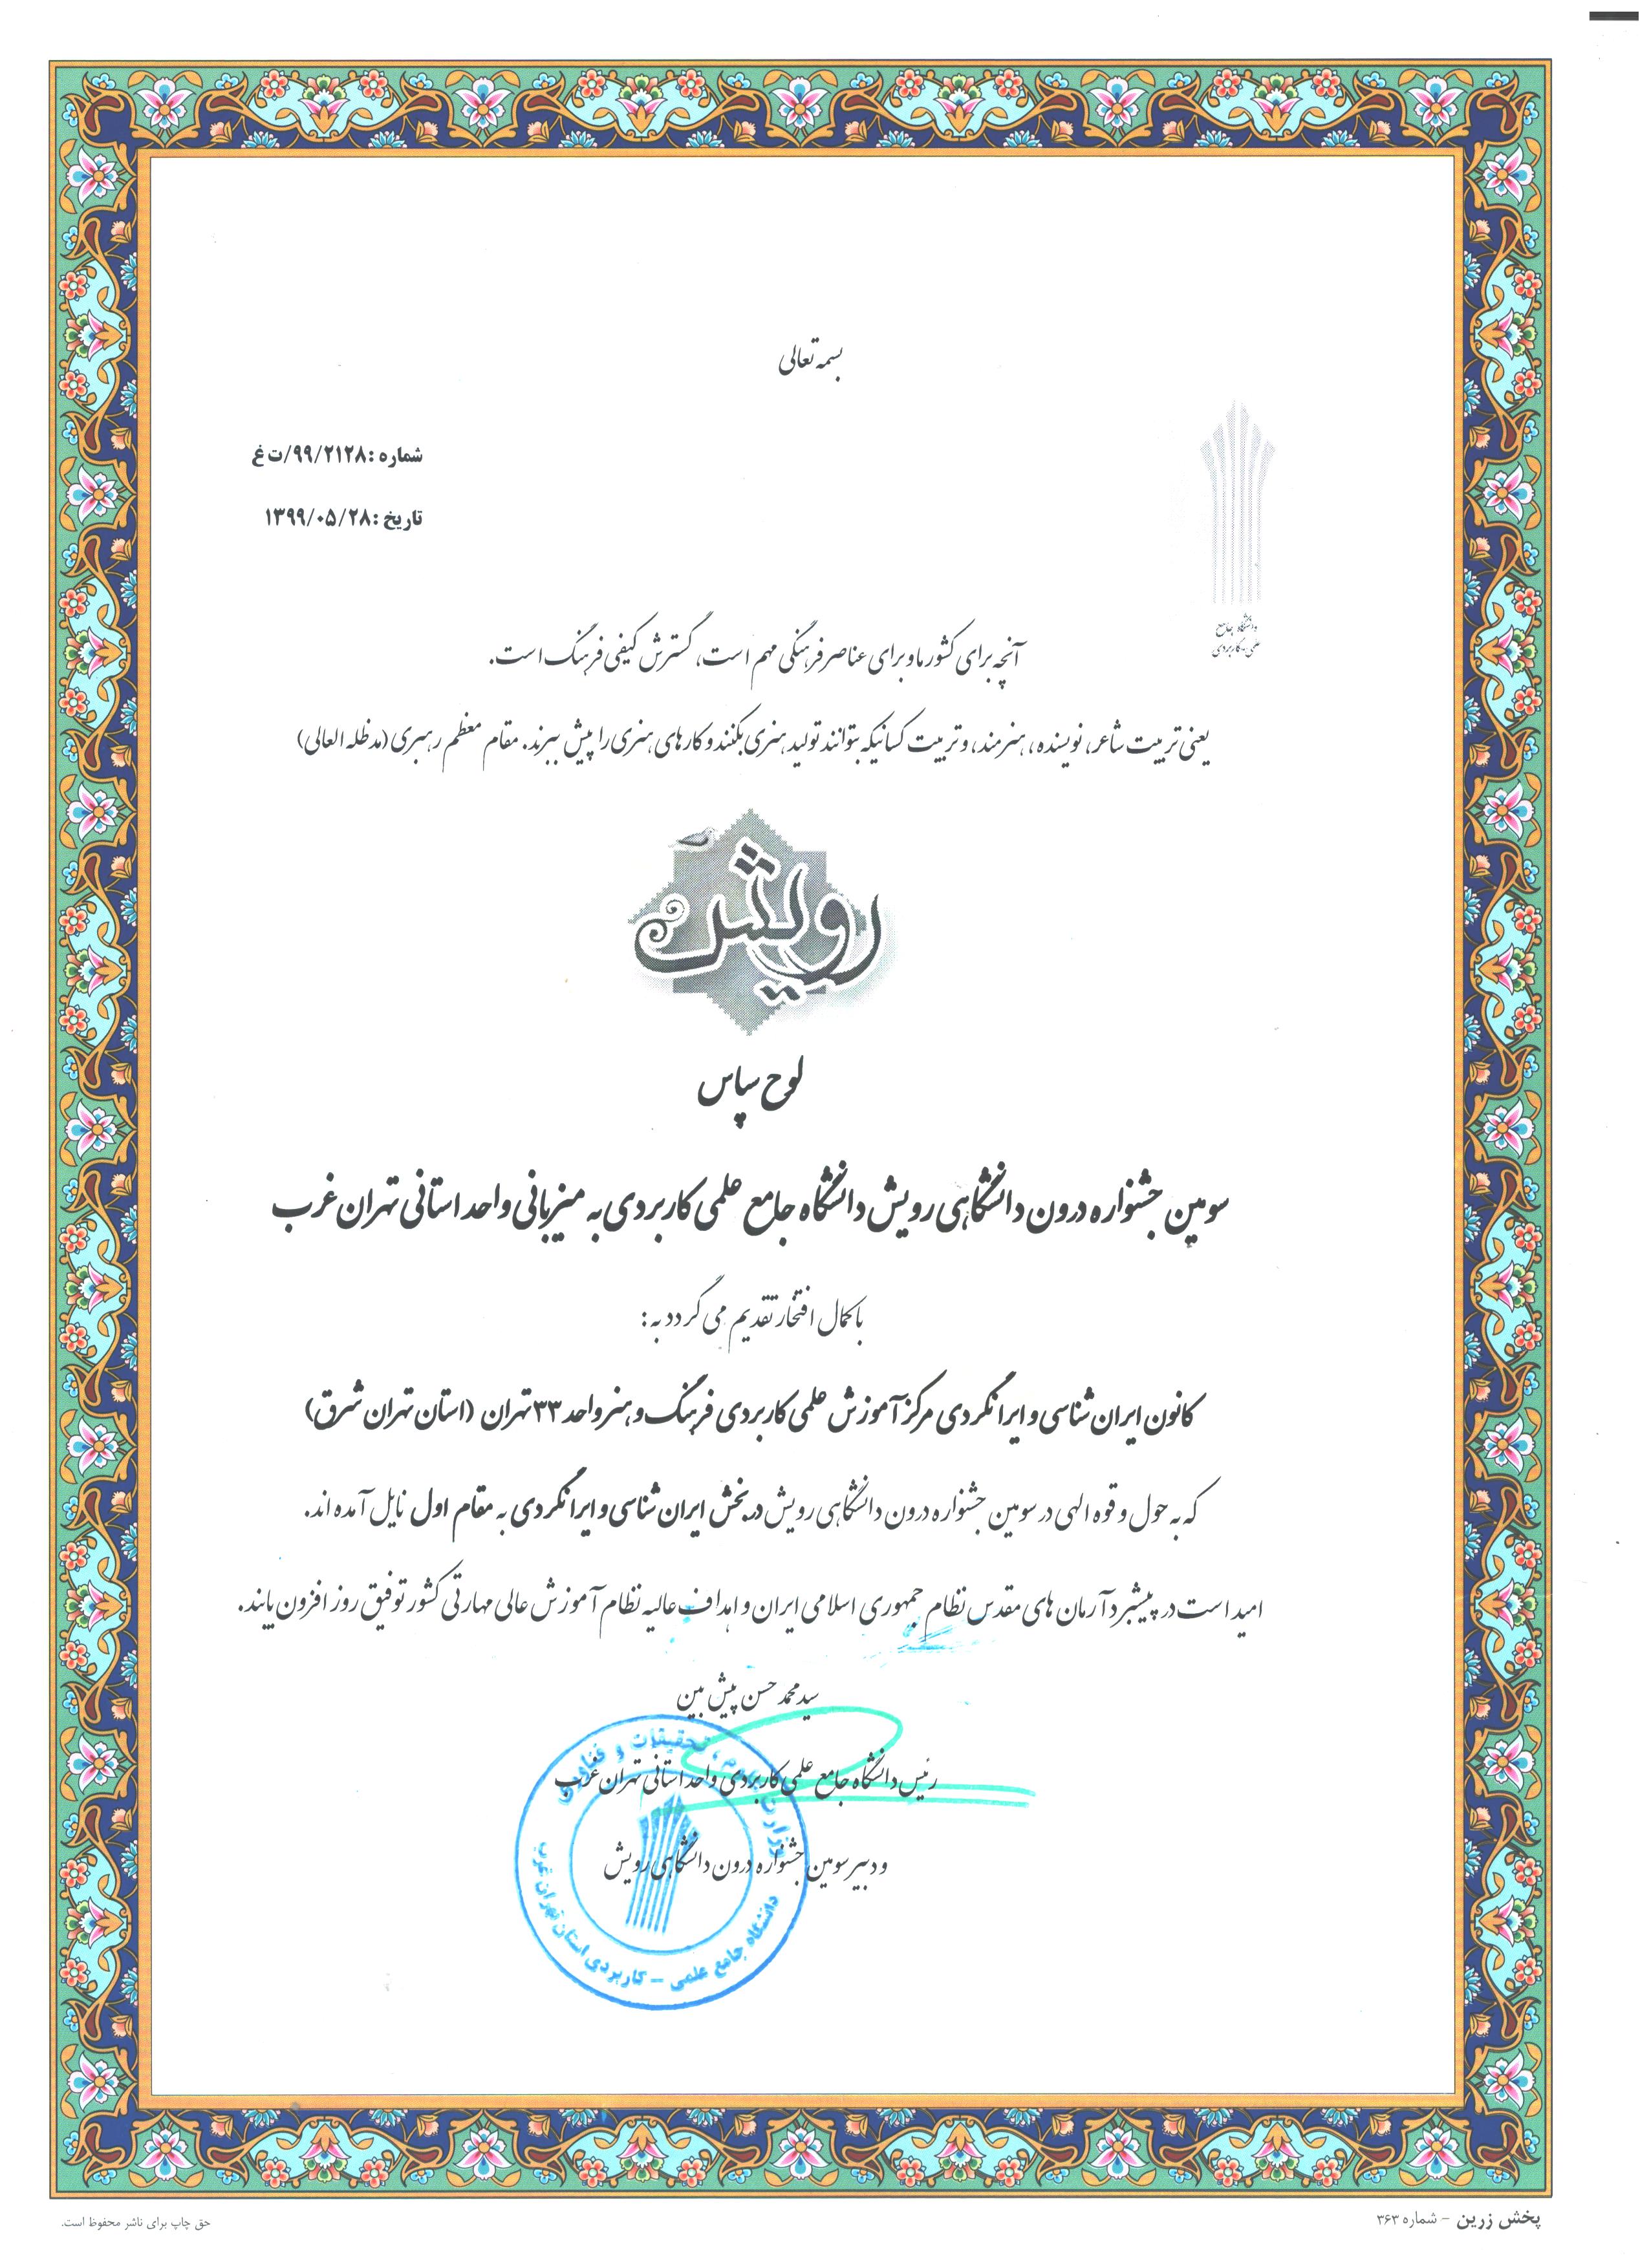 بسمه تعالی
شماره :۹۹/۲۱۲۸/ت غ
تاریخ :۱۳۹۹/۰۵/۲۸
دانشگاه جامع
علمی-کاربردی
آنچه برای کشور ما و برای عناصر فرهنگی مهم است، گسترش کیفی فرهنگ است.
یعنی تربیت شاعر، نویسنده، هنرمند، و تربیت کسانیکه بتوانند تولید هنری بکنند و کارهای هنری را پیش ببرند. مقام معظم رهبری (مدظله العالی)
رویش
لوح سپاس
سومین جشنواره درون دانشگاهی رویش دانشگاه جامع علمی کاربردی به میزبانی واحد استانی تهران غرب
با کمال افتخار تقدیم می گردد به:
کانون ایران شناسی و ایرانگردی مرکز آموزش علمی کاربردی فرهنگ و هنر واحد ۳۳ تهران (استان تهران شرق)
که به حول و قوه الهی در سومین جشنواره درون دانشگاهی رویش در بخش ایران شناسی و ایرانگردی به مقام اول نایل آمده اند.
امید است در پیشبرد آرمان های مقدس نظام جمهوری اسلامی ایران و اهداف عالیه نظام آموزش عالی مهارتی کشور توفیق روز افزون یابند.
سید محمد حسن پیش بین
رئیس دانشگاه جامع علمی کاربردی واحد استانی تهران غرب
و دبیر سومین جشنواره درون دانشگاهی رویش
وزارت علوم، تحقیقات و فناوری
دانشگاه جامع علمی - کاربردی استان تهران غرب
پخش زرین - شماره ۳۶۳
حق چاپ برای ناشر محفوظ است.